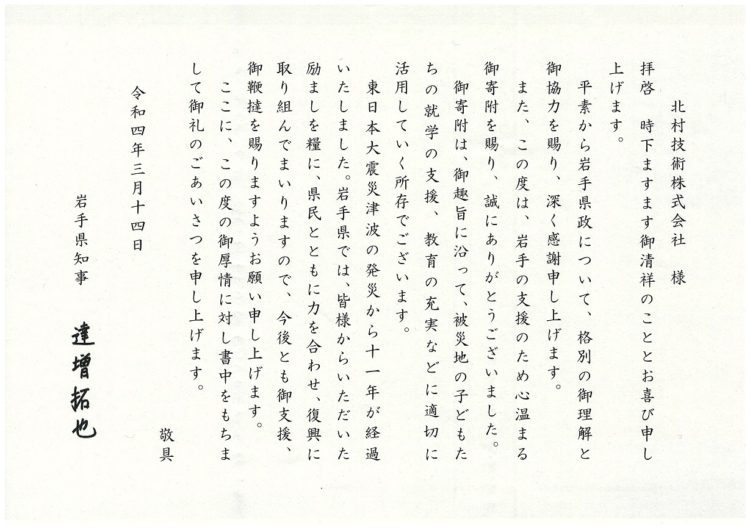 北村技術株式会社　様
拝啓　時下ますます御清祥のこととお喜び申し
上げます。
平素から岩手県政について、格別の御理解と
御協力を賜り、深く感謝申し上げます。
また、この度は、岩手の支援のため心温まる
御寄附を賜り、誠にありがとうございました。
御寄附は、御趣旨に沿って、被災地の子どもた
ちの就学の支援、教育の充実などに適切に
活用していく所存でございます。
東日本大震災津波の発災から十一年が経過
いたしました。岩手県では、皆様からいただいた
励ましを糧に、県民とともに力を合わせ、復興に
取り組んでまいりますので、今後とも御支援、
御鞭撻を賜りますようお願い申し上げます。
ここに、この度の御厚情に対し書中をもちま
して御礼のごあいさつを申し上げます。
敬具
令和四年三月十四日
岩手県知事　達増拓也